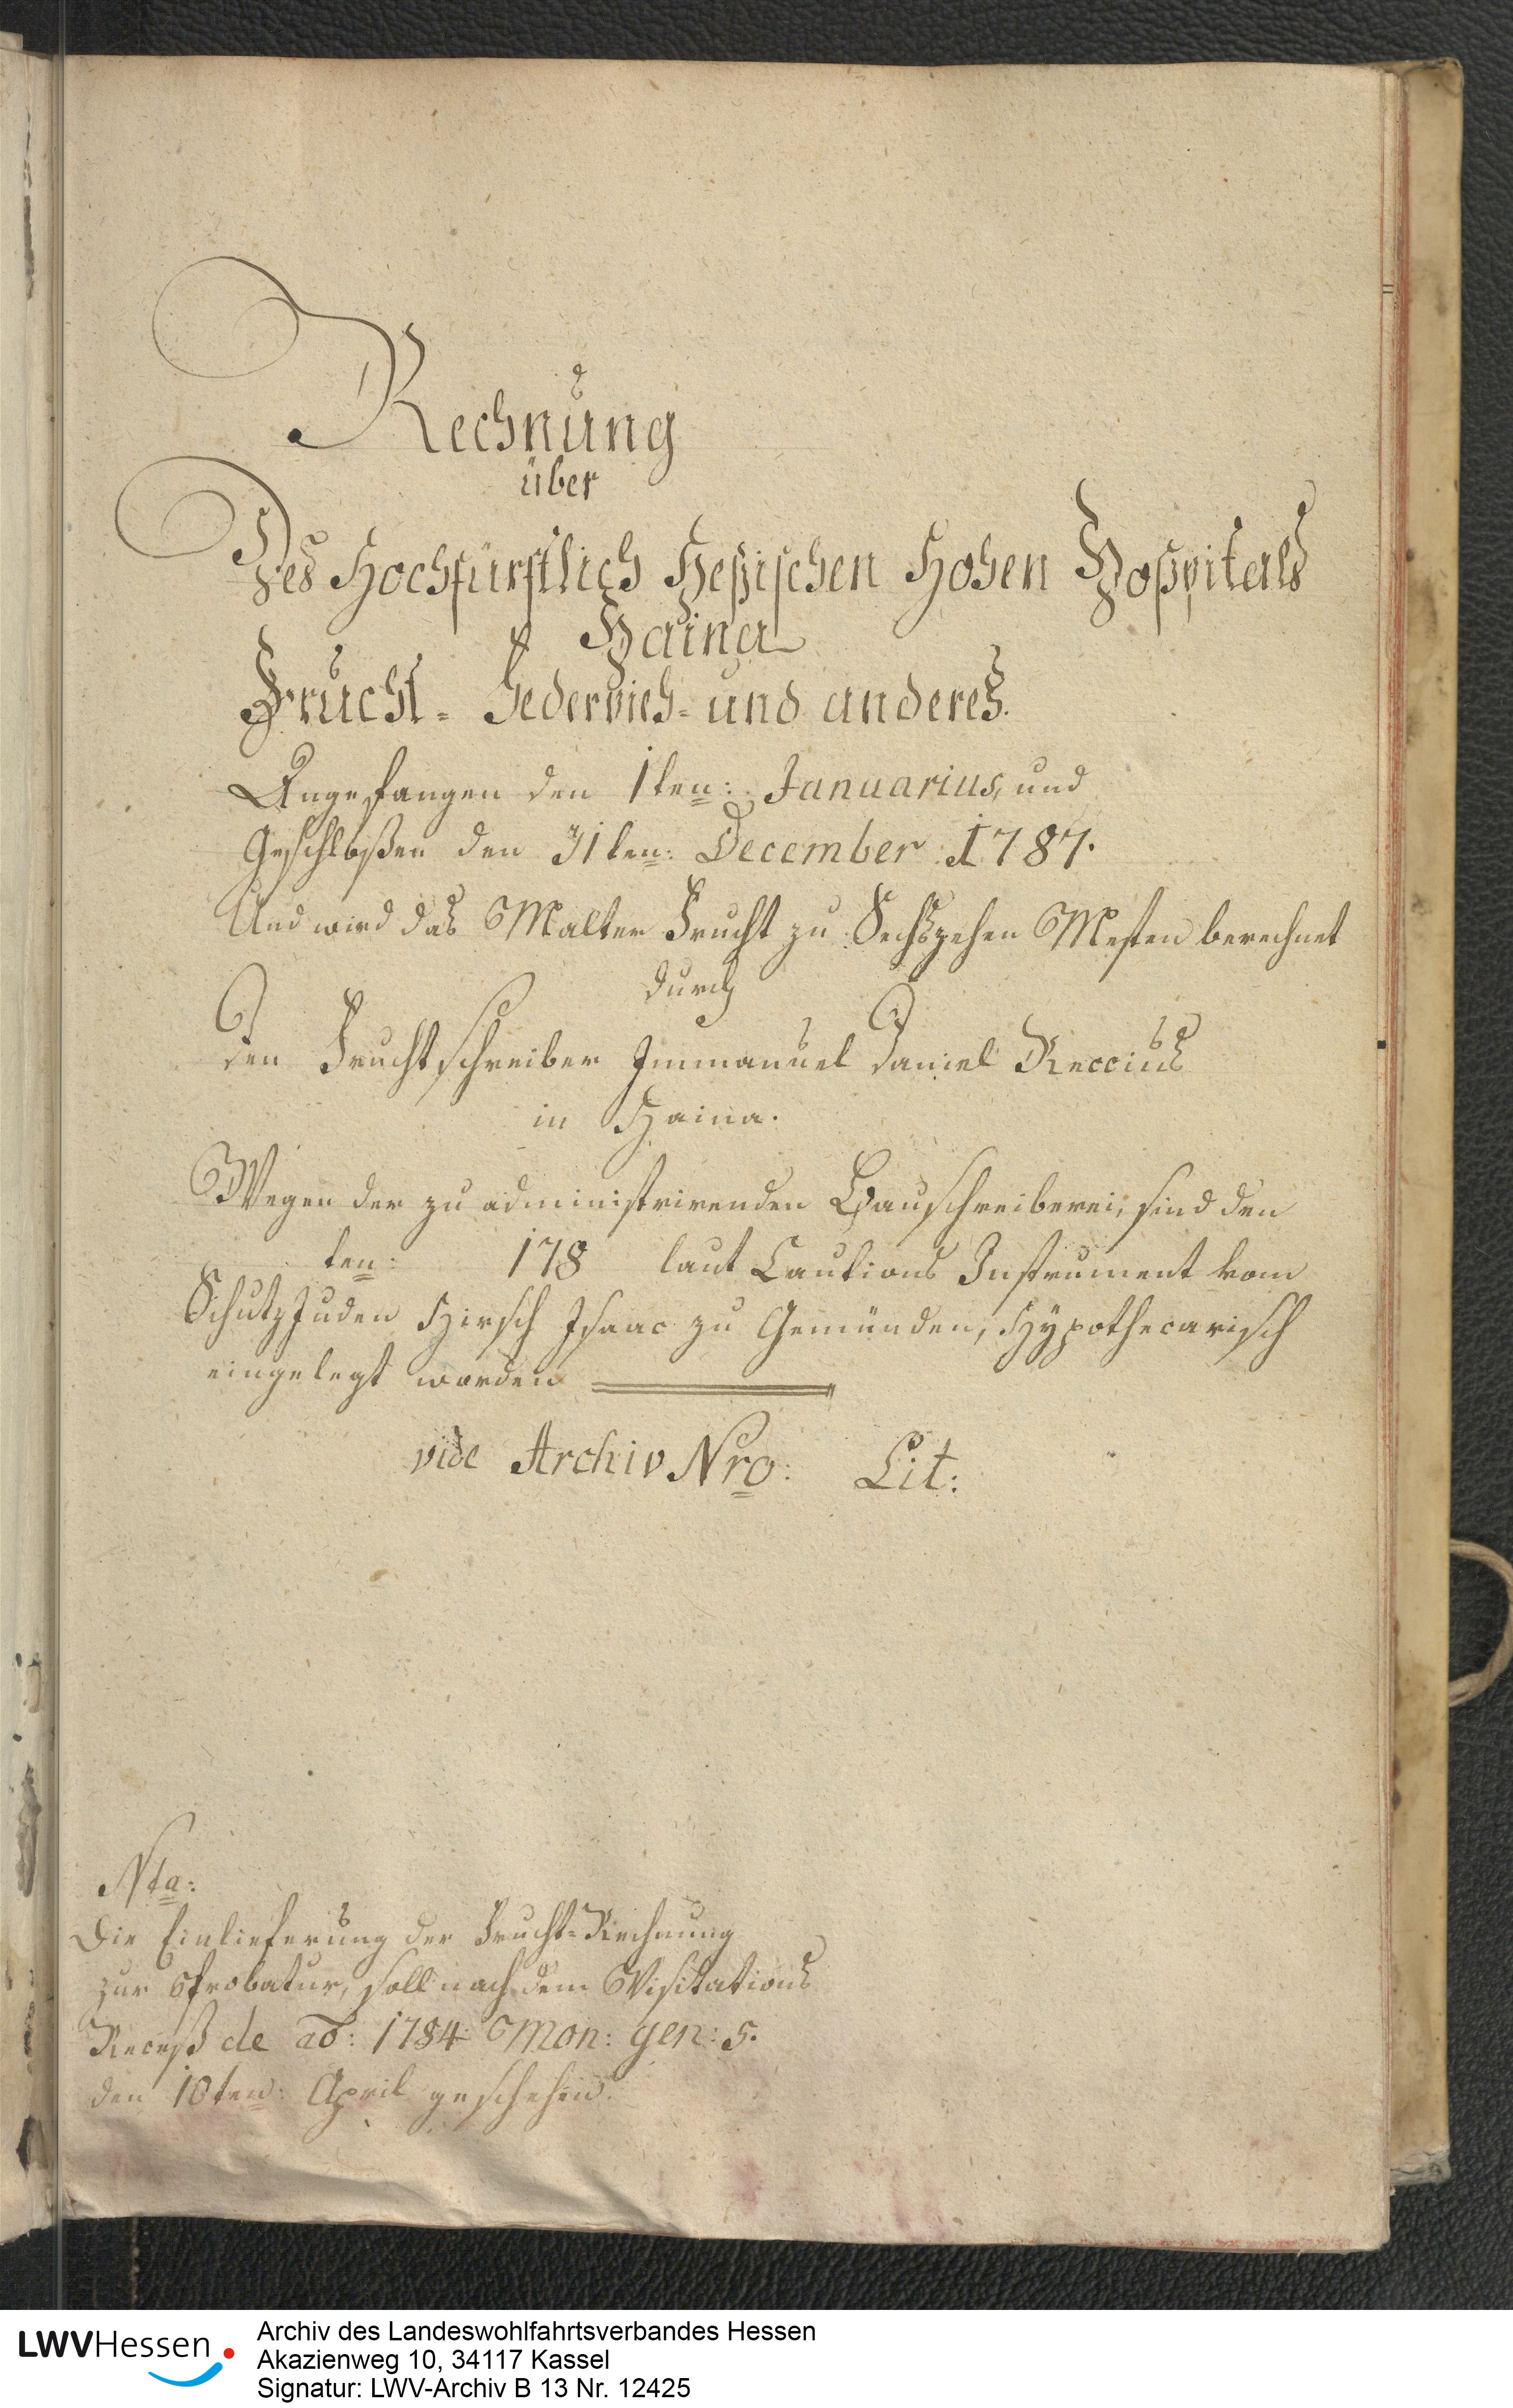 Rechnung
über
Des Hochfürstlich Heßischen Hohen Hoßpitals
Haina
Frucht- Federvieh- und anderes.
Angefangen den 1ten: Januarius, und
Geschloßen den 31ten: December 1787.
Und wird das Malter Frucht zu Sechszehen Mesten berechnet
durch
den Fruchtschreiber Immanuel Daniel Reccius
in Haina.
Wegen der zu administrirenden Bauschreiberei, sind den
ten: 178 laut Cautions Instrument vom
SchutzJuden Hirsch Isaac zu Gemünden, Hÿpothecarisch
eingelegt worden
vide Archiv Nro: Lit:
Nta:
Die Einlieferung der Frucht-Rechnung
zur Probatur, soll nach dem Visitations
Receß de ao: 1784 Mon: gen: 5.
den 10ten: April geschehen.
LWVHessen
Archiv des Landeswohlfahrtsverbandes Hessen
Akazienweg 10, 34117 Kassel
Signatur: LWV-Archiv B 13 Nr. 12425